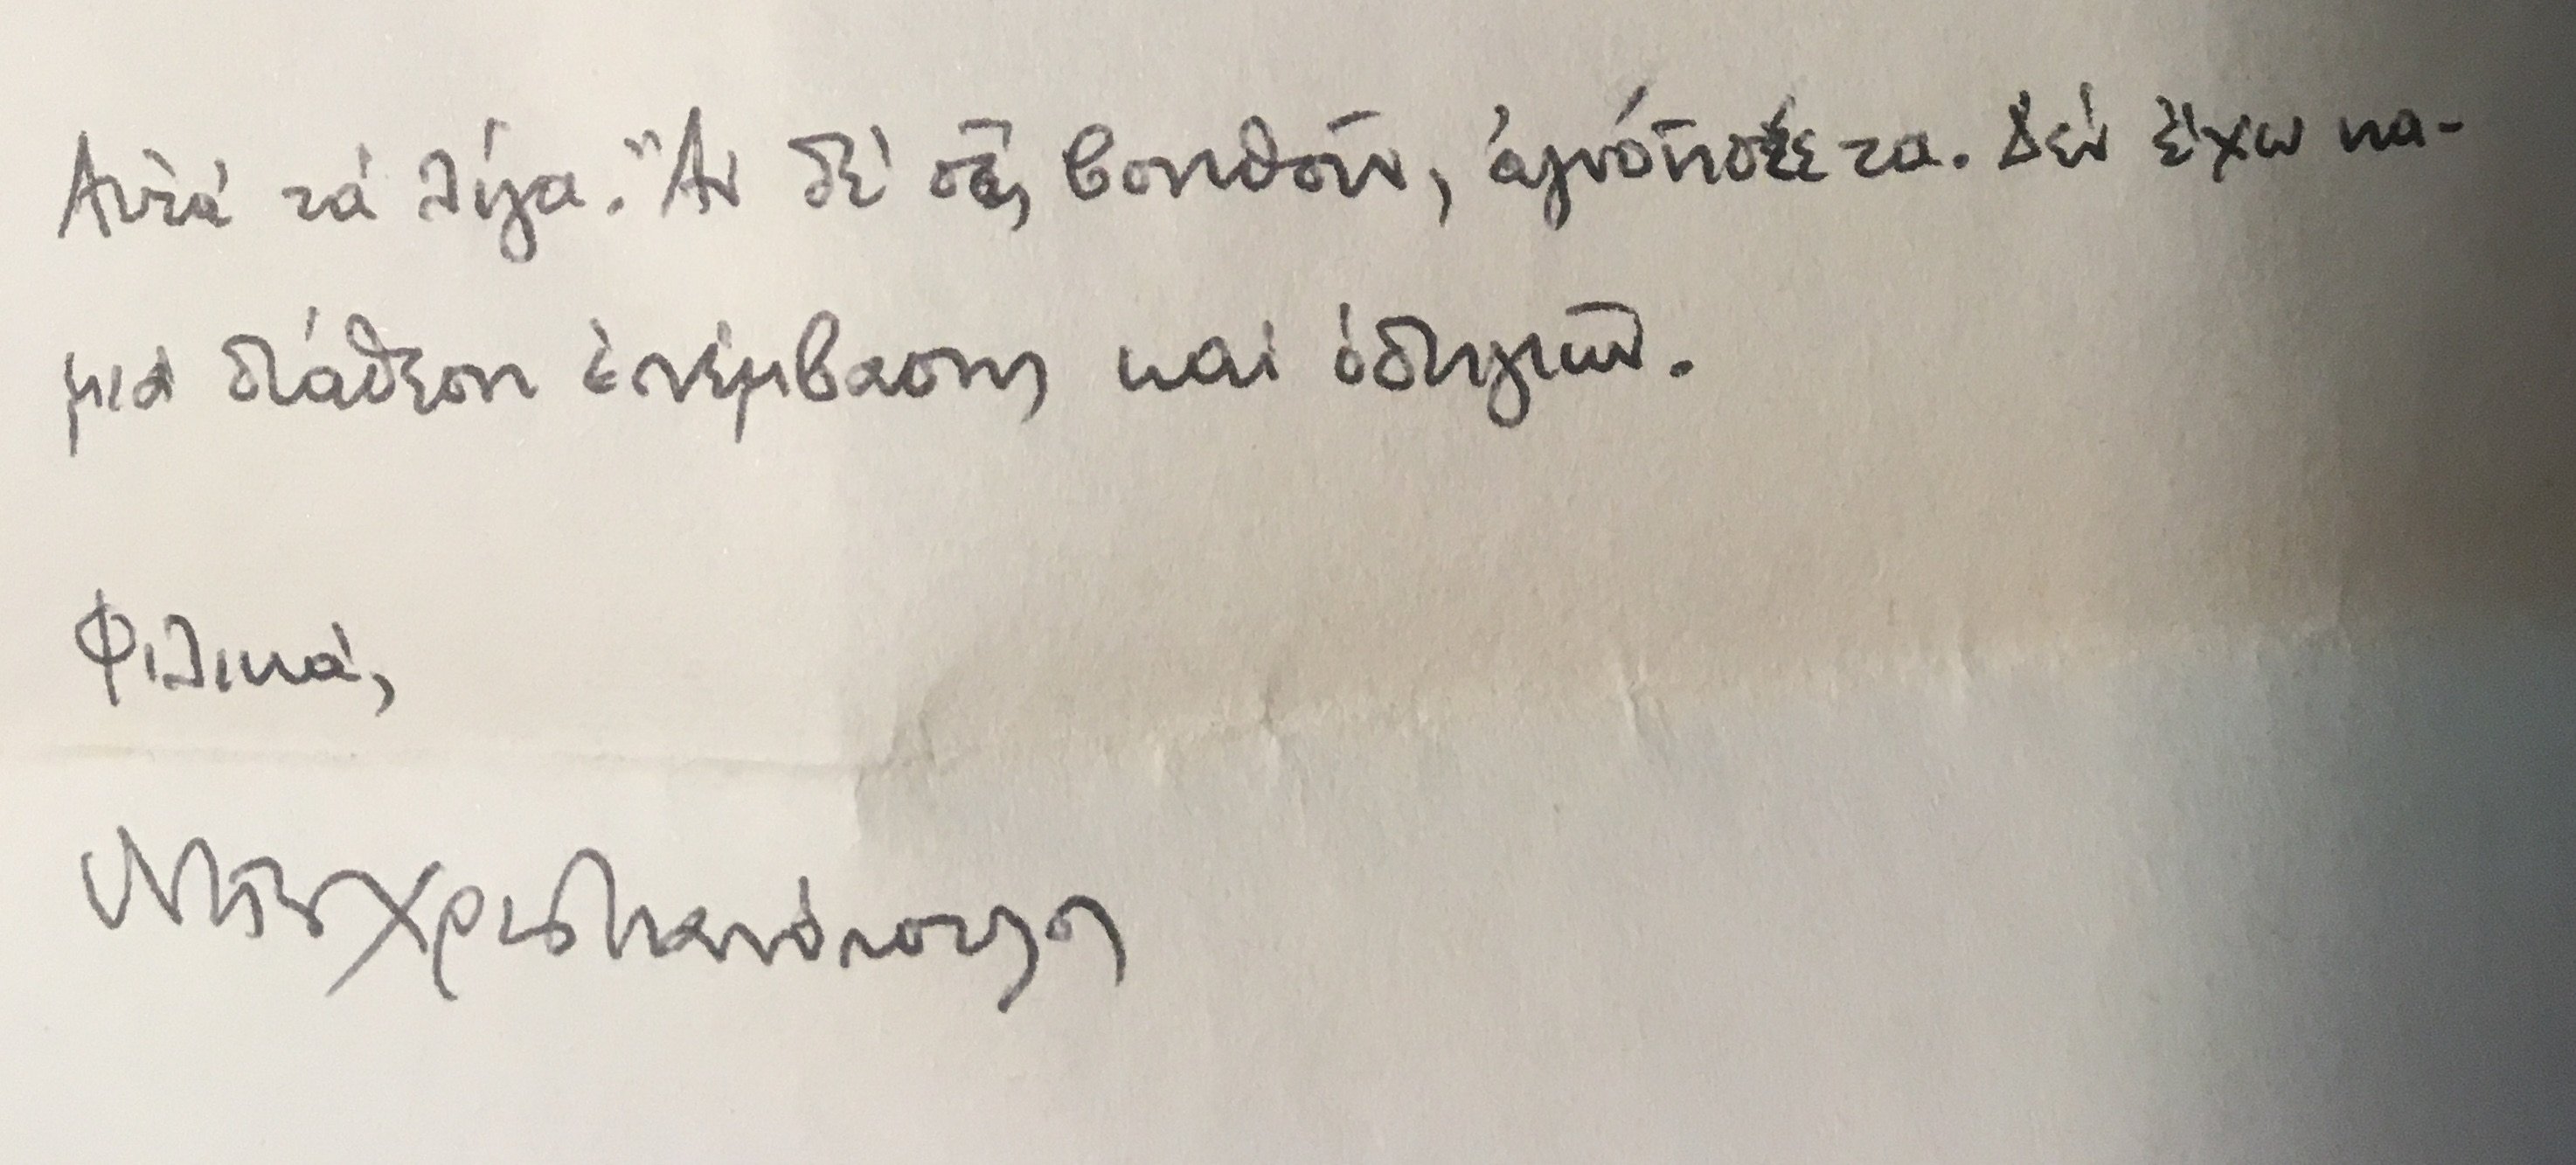 Αὐτά τά λίγα. Ἄν δέ σᾶς βοηθοῦν, ἀγνόησέ τα. Δέν ἔχω κα-
μιά διάθεση ἐπέμβασης καί ὁδηγιῶν.
Φιλικά,
Ντῖνος Χριστιανόπουλος